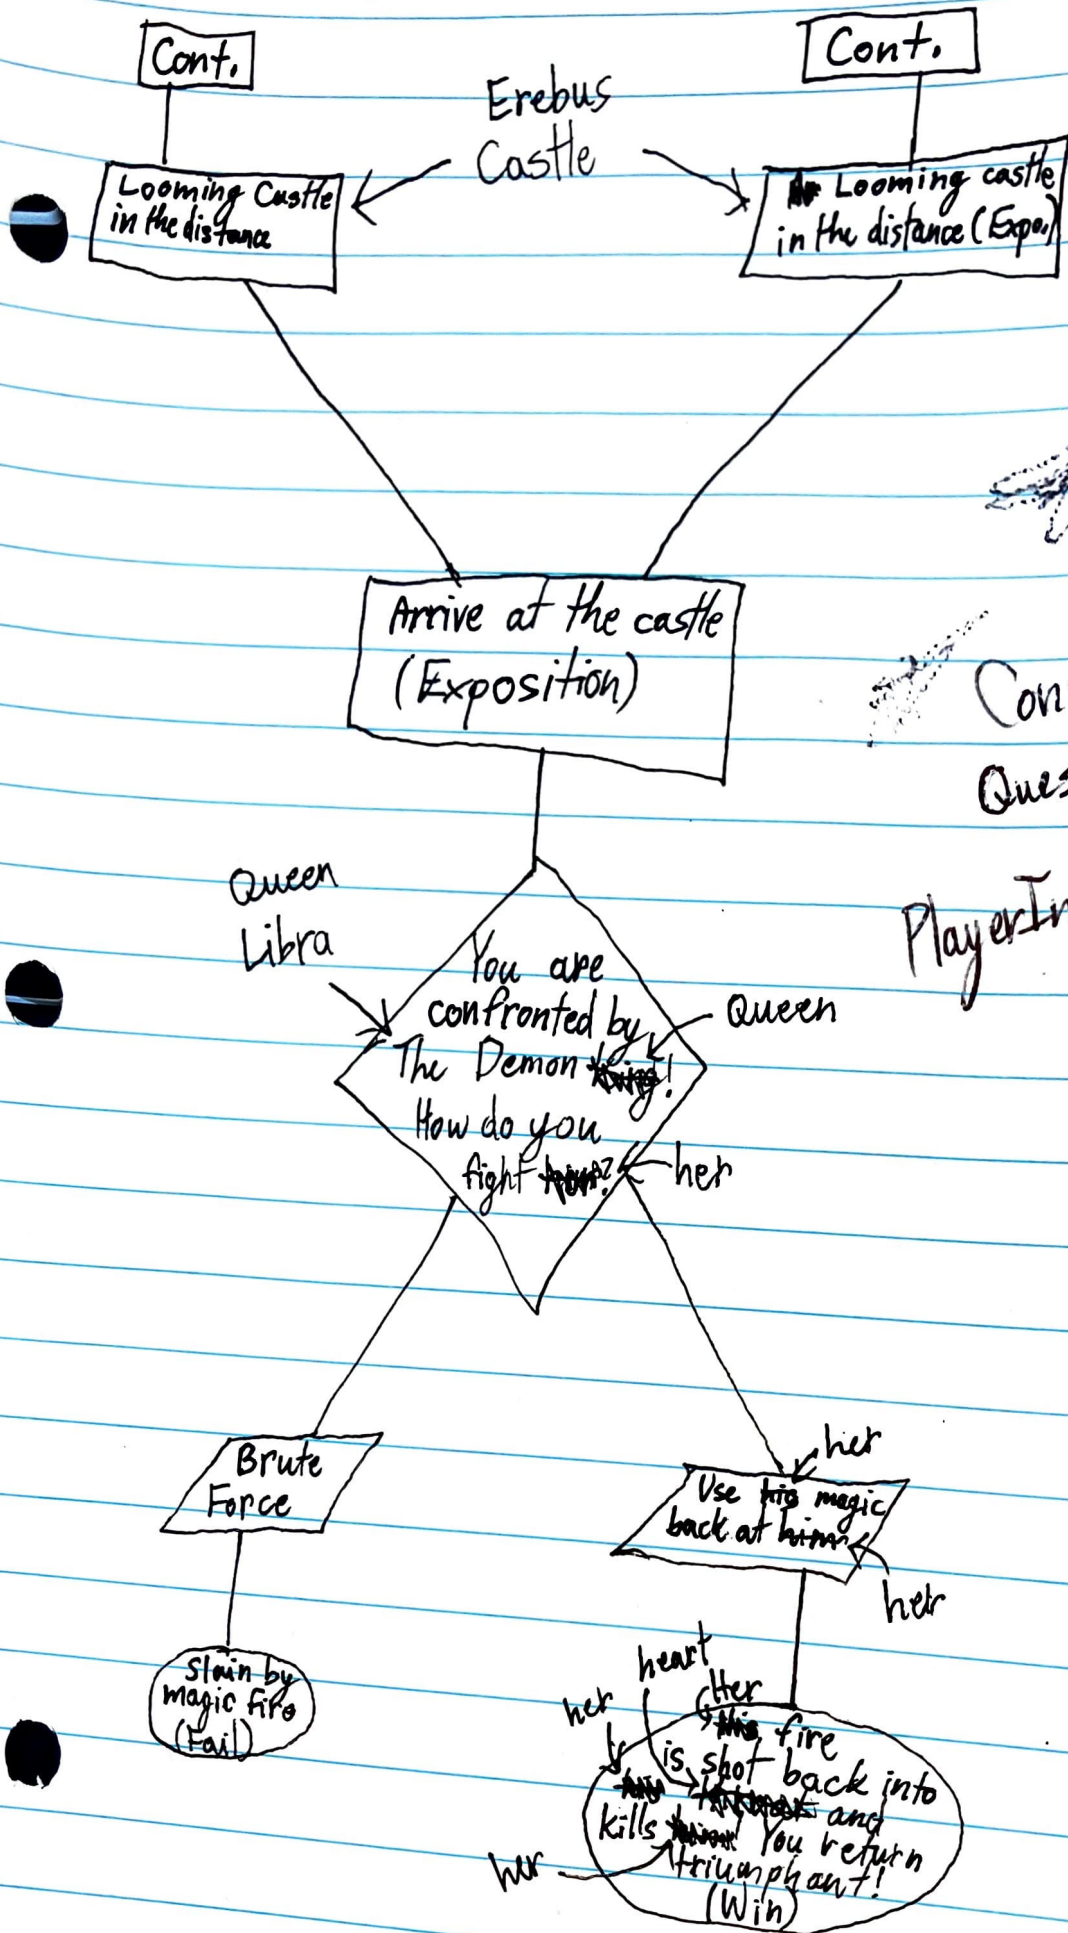 Cont.
Cont.
Erebus
Castle
Looming Castle
in the distance
Looming castle
in the distance (Expo.)
Arrive at the castle
(Exposition)
Con
Ques
PlayerIn
Queen
Libra
You are
confronted by
Queen
The Demon king!
How do you
fight him?
her
Brute
Force
her
Use his magic
back at him
her
Slain by
magic fire
(Fail)
heart
Her
her
his fire
is shot back into
and
kills You return
triumphant!
her
(Win)